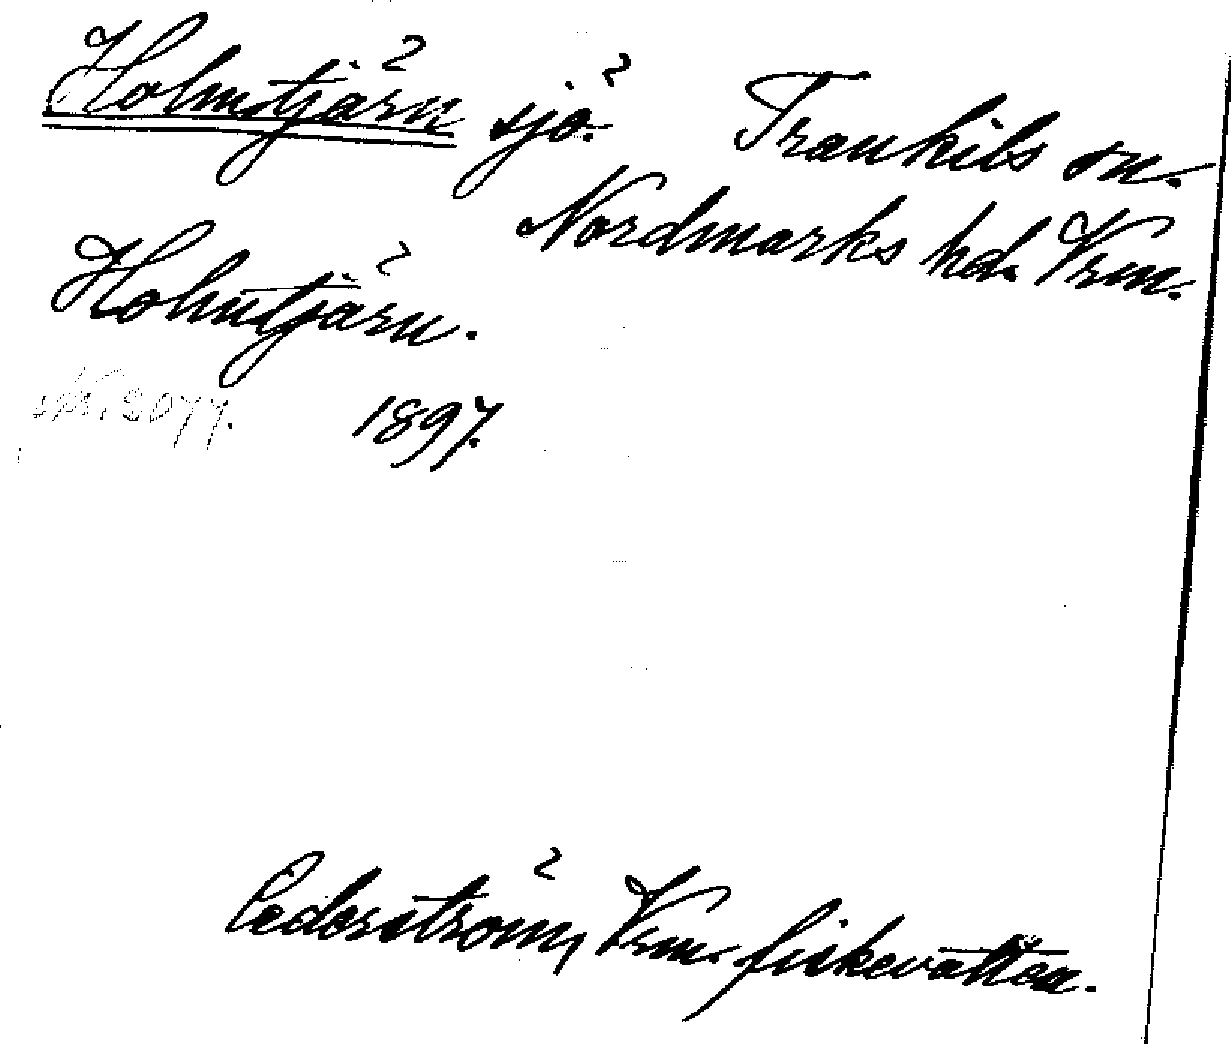 Holmtjärn sjö. Trankils sn.
Nordmarks hd. Vrm.
Holmtjärn.
1897.
Cederström, Vrm. fiskevatten.